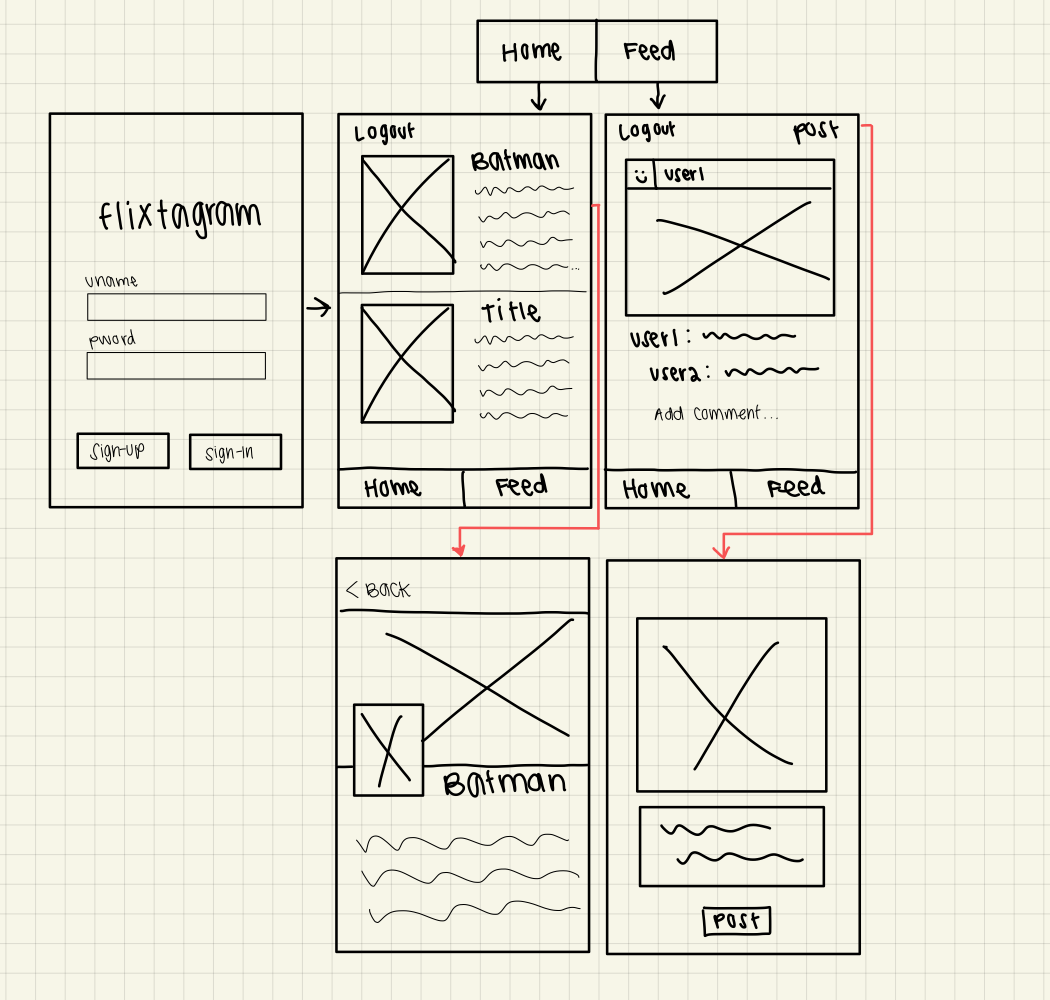 Home Feed
flixtagram
uname
pword
sign-up sign-in
Logout
Batman
...
Title
Home Feed
Logout post
:) user1
user1:
user2:
Add comment...
Home Feed
< Back
Batman
post